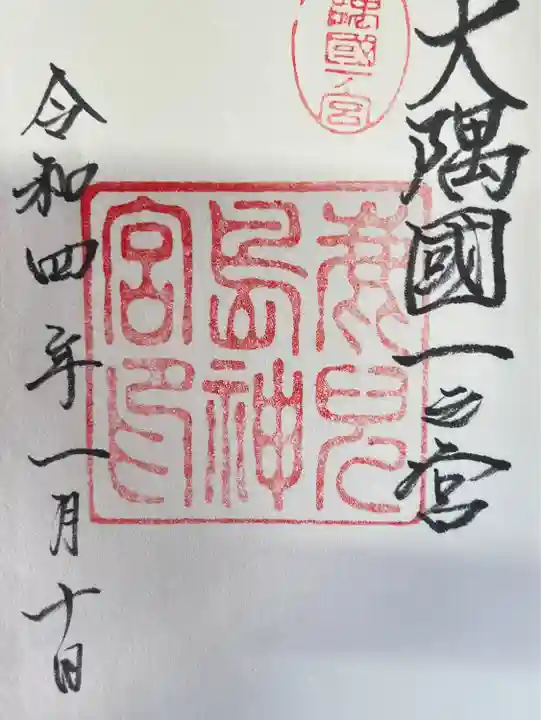 大隅國一之宮
隅國一ノ宮
鹿兒
島神
宮印
令和四年一月十日